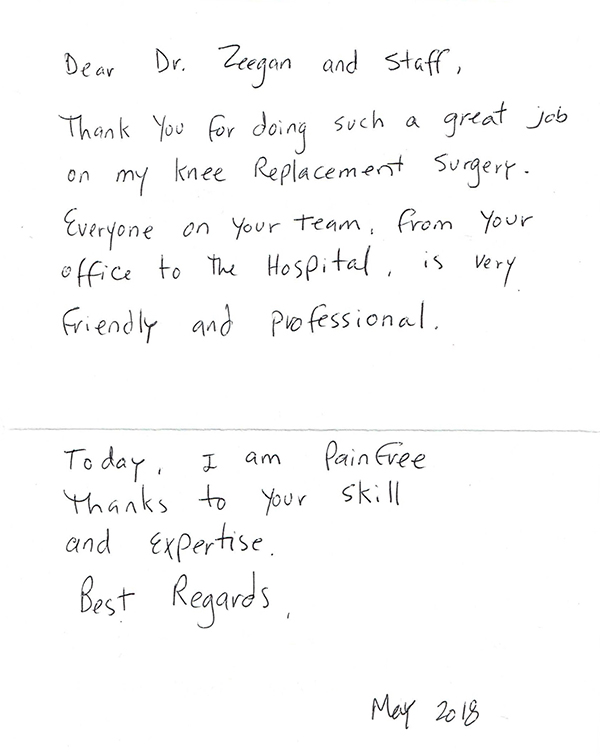 Dear Dr. Zeegan and Staff,
Thank You for doing such a great job
on my knee Replacement Surgery.
Everyone on your team, from your
office to the Hospital, is very
friendly and professional.
Today, I am Pain Free
thanks to your skill
and expertise.
Best Regards,
May 2018